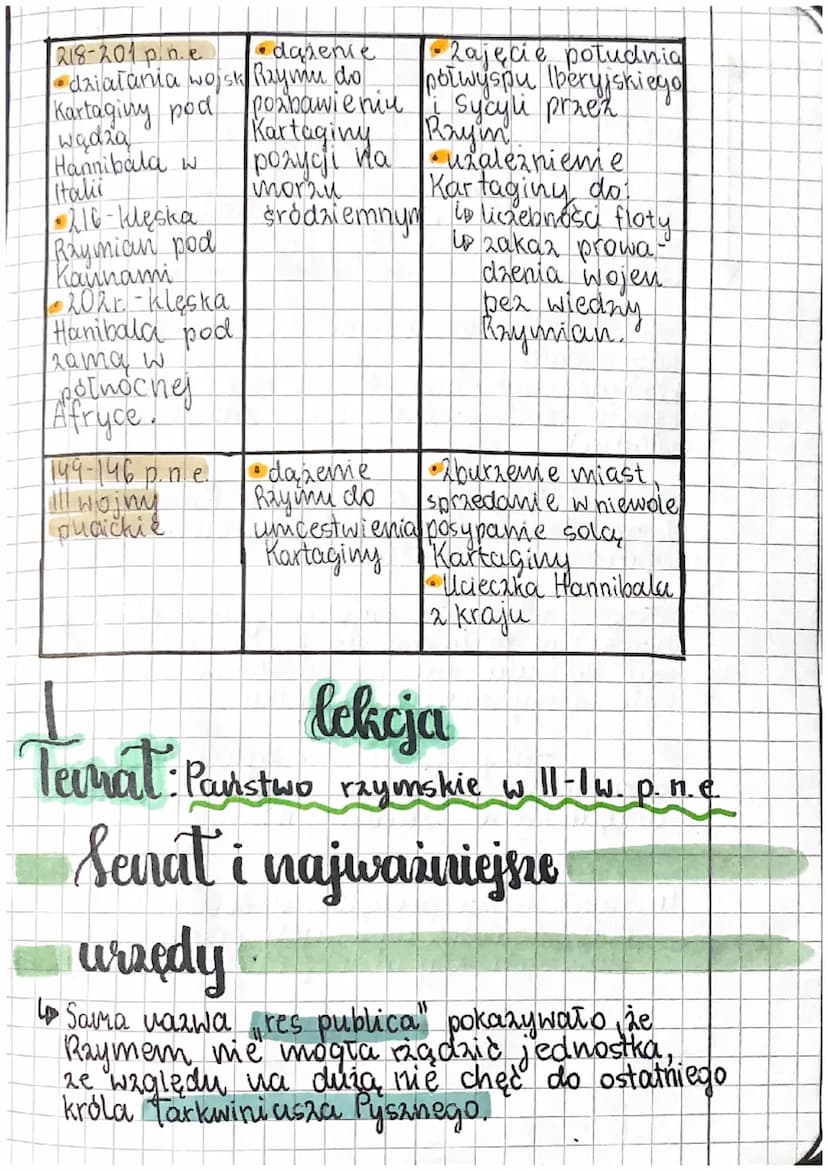 218-201 p.n.e
•działania wojsk
Kartaginy pod
wądzą
Hannibala w
Italii
•216-klęska
Rzymian pod
Kannami
•202r.-klęska
Hanibala pod
zamą w
północnej
Afryce.
•dążenie
Rzymu do
pozbawieniu
Kartaginy
pozycji na
morzu
śródziemnym
•Zajęcie południa
półwyspu Iberyjskiego
i Sycyli przez
Rzym.
•uzależnienie
Kartaginy do:
↳ liczebności floty
↳ zakaz prowa-
dzenia wojen
bez wiedzy
Rzymian.
149-146 p.n.e.
III wojny
punickie
•dążenie
Rzymu do
unicestwienia
Kartaginy
•Zburzenie miast,
sprzedanie w niewole
posypanie solą
Kartaginy
•Ucieczka Hannibala
z kraju
1 lekcja
Temat: Państwo rzymskie w II-I w. p.n.e
Senat i najważniejsze
urzędy
↳ Sama nazwa „res publica" pokazywało, że
Rzymem nie mogła rządzić jednostka,
ze względu na dużą nie chęć do ostatniego
króla Tarkwiniusza Pysznego.